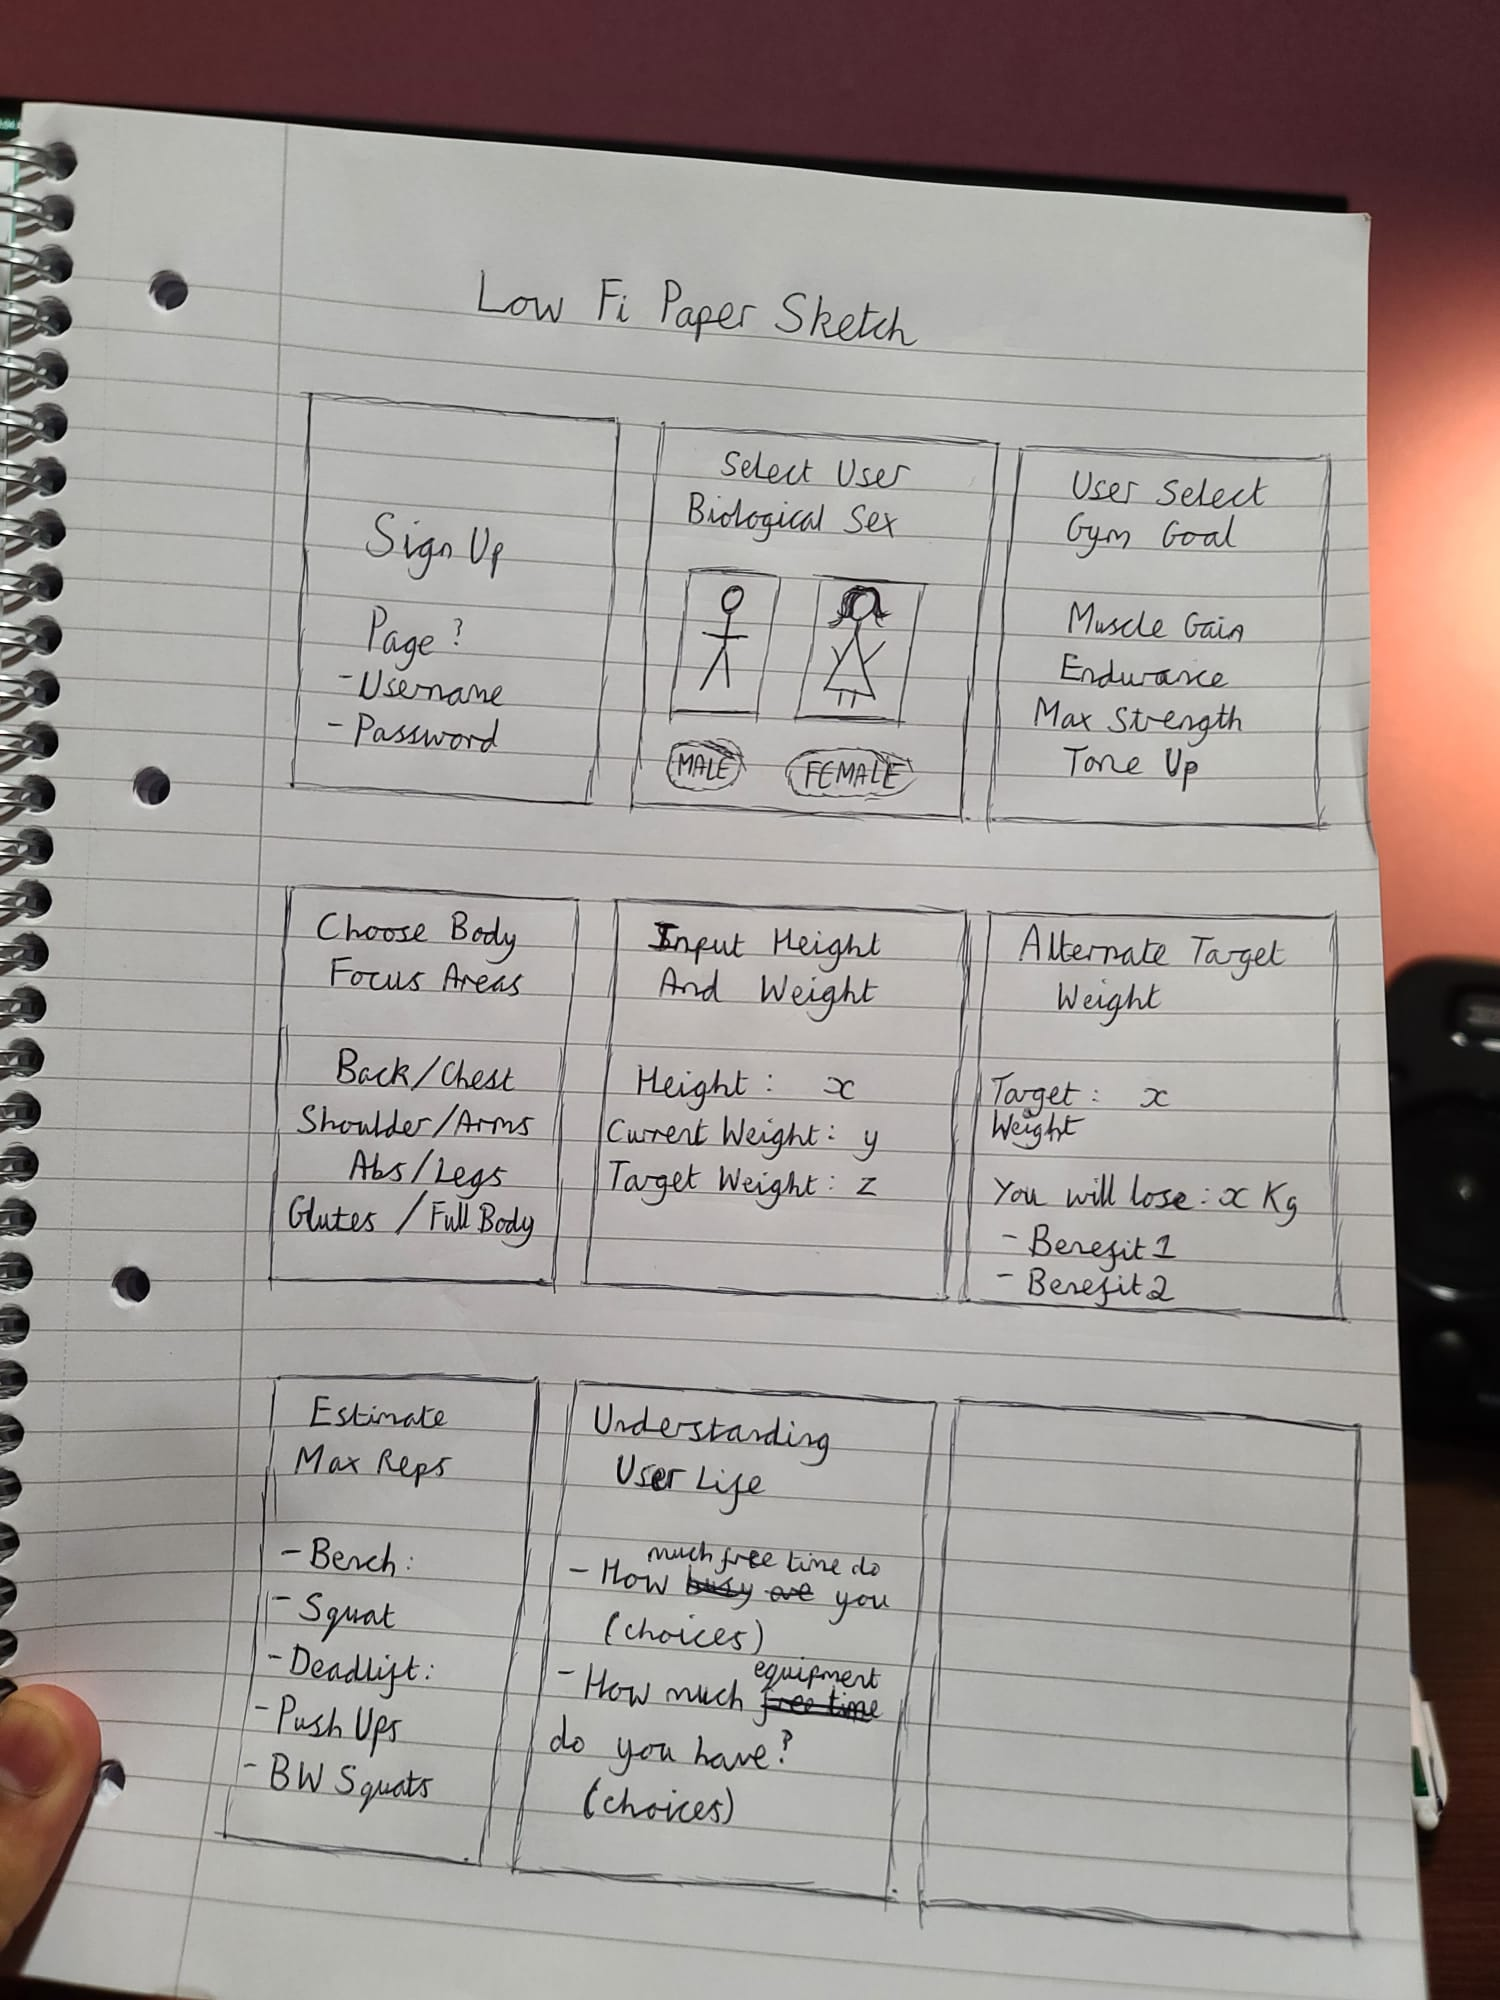 Low Fi Paper Sketch
Sign Up
Page?
- Username
- Password
Select User
Biological Sex
MALE
FEMALE
User Select
Gym Goal
Muscle Gain
Endurance
Max Strength
Tone Up
Choose Body
Focus Areas
Back/Chest
Shoulder/Arms
Abs/Legs
Glutes/Full Body
Input Height
And Weight
Height: x
Current Weight: y
Target Weight: z
Alternate Target
Weight
Target: x
Weight
You will lose: x Kg
- Benefit 1
- Benefit 2
Estimate
Max Reps
- Bench:
- Squat
- Deadlift:
- Push Ups
- BW Squats
Understanding
User Life
much free time do
- How busy are you
(choices)
equipment
- How much free time
do you have?
(choices)